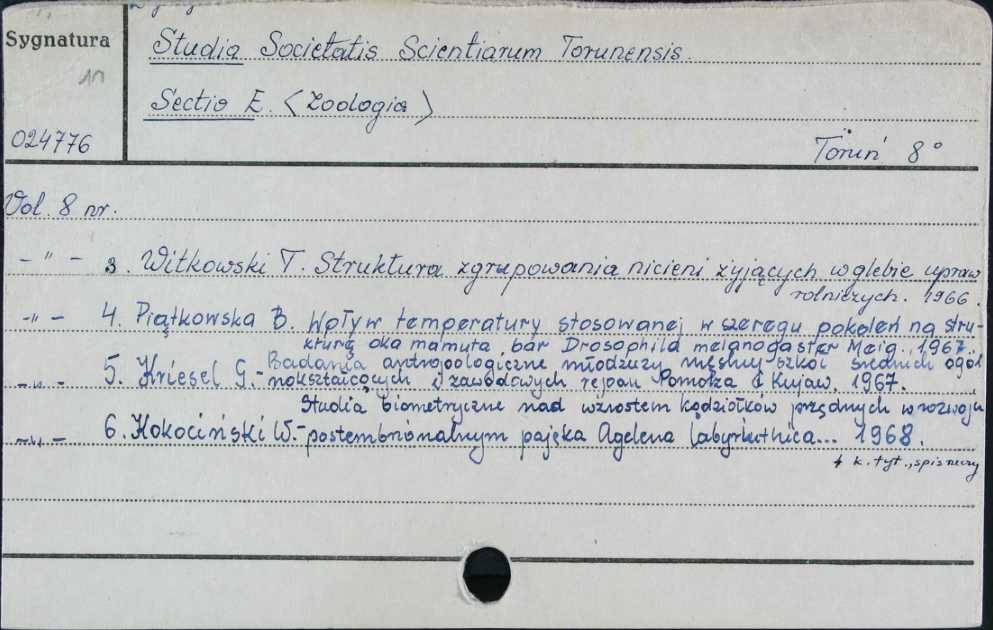 Sygnatura
Studia Societatis Scientiarum Torunensis.
Sectio E. <Zoologia>
024776
Toruń 8°
Vol. 8 nr.
- " - 3. Witkowski T. Struktura zgrupowania nicieni żyjących w glebie upraw
rolniczych. 1966.
- " - 4. Piątkowska B. Wpływ temperatury stosowanej w szeregu pokoleń na stru-
kturę oka mamuta bar Drosophila melanogaster Meig., 1967.
Badania antropologiczne młodzieży męskiej szkół średnich ogól
- " - 5. Kriesel G.- nokształcących i zawodowych rejonu Pomorza i Kujaw. 1967.
Studia biometryczne nad wzrostem kądziołków przędnych w rozwoju
- " - 6. Kokociński W.- postembrionalnym pająka Agelena labyrinthica... 1968.
+ k. tyt., spis rzeczy